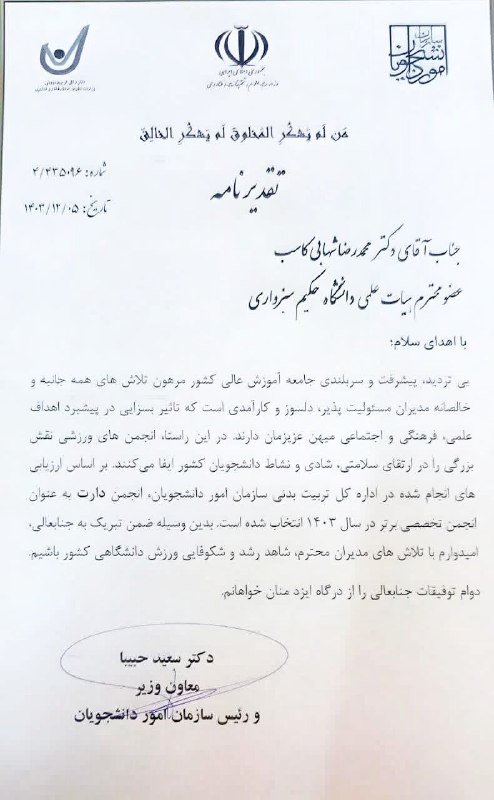 سازمان امور دانشجویان
جمهوری اسلامی ایران
وزارت علوم، تحقیقات و فناوری
مَن لَم یَشکُرِ المَخلوق لَم یَشکُرِ الخالِق
تقدیرنامه
شماره: ۴/۴۳۵۰۹۶
تاریخ: ۱۴۰۳/۱۲/۰۵
جناب آقای دکتر محمدرضا شهابی کاسب
عضو محترم هیات علمی دانشگاه حکیم سبزواری
با اهدای سلام؛
بی تردید، پیشرفت و سربلندی جامعه آموزش عالی کشور مرهون تلاش های همه جانبه و
خالصانه مدیران مسئولیت پذیر، دلسوز و کارآمدی است که تاثیر بسزایی در پیشبرد اهداف
علمی، فرهنگی و اجتماعی میهن عزیزمان دارند. در این راستا، انجمن های ورزشی نقش
بزرگی را در ارتقای سلامتی، شادی و نشاط دانشجویان کشور ایفا می‌کنند. بر اساس ارزیابی
های انجام شده در اداره کل تربیت بدنی سازمان امور دانشجویان، انجمن دارت به عنوان
انجمن تخصصی برتر در سال ۱۴۰۳ انتخاب شده است. بدین وسیله ضمن تبریک به جنابعالی،
امیدوارم با تلاش های مدیران محترم، شاهد رشد و شکوفایی ورزش دانشگاهی کشور باشیم.
دوام توفیقات جنابعالی را از درگاه ایزد منان خواهانم.
دکتر سعید حبیبا
معاون وزیر
و رئیس سازمان امور دانشجویان